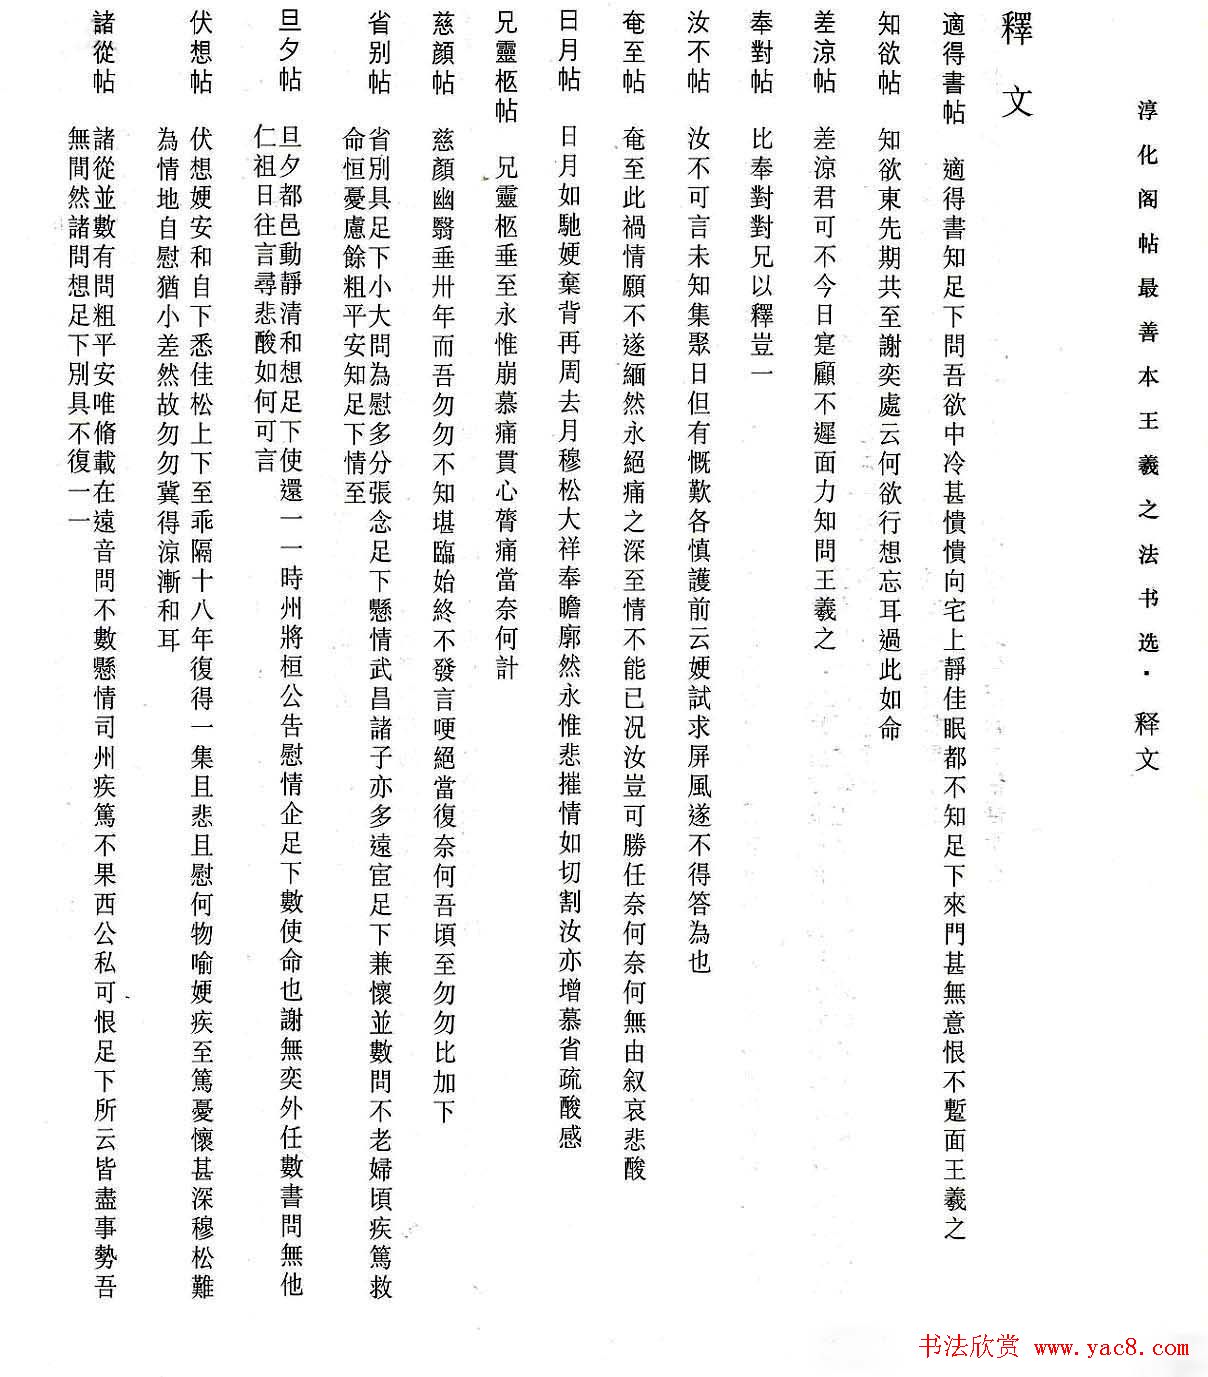 淳化阁帖最善本王羲之法书选·释文
釋文
適得書帖 適得書知足下問吾欲中冷甚憒憒向宅上靜佳眠都不知足下來門甚無意恨不蹔面王羲之
知欲帖 知欲東先期共至謝奕處云何欲行想忘耳過此如命
差涼帖 差涼君可不今日寔顧不遲面力知問王羲之
奉對帖 比奉對對兄以釋豈一
汝不帖 汝不可言未知集聚日但有慨歎各慎護前云㛐試求屏風遂不得答為也
奄至帖 奄至此禍情願不遂緬然永絕痛之深至情不能已况汝豈可勝任奈何奈何無由叙哀悲酸
日月帖 日月如馳㛐棄背再周去月穆松大祥奉瞻廓然永惟悲摧情如切割汝亦增慕省疏酸感
兄靈柩帖 兄靈柩垂至永惟崩慕痛貫心膂痛當奈何計
慈顏帖 慈顏幽翳垂卅年而吾勿勿不知堪臨始終不發言哽絕當復奈何吾頃至勿勿比加下
省別帖 省別具足下小大問為慰多分張念足下懸情武昌諸子亦多遠宦足下兼懷並數問不老婦頃疾篤救
命恒憂慮餘粗平安知足下情至
旦夕帖 旦夕都邑動靜清和想足下使還一一時州將桓公告慰情企足下數使命也謝無奕外任數書問無他
仁祖日往言尋悲酸如何可言
伏想帖 伏想㛐安和自下悉佳松上下至乖隔十八年復得一集且悲且慰何物喻㛐疾至篤憂懷甚深穆松難
為情地自慰猶小差然故勿勿冀得涼漸和耳
諸從帖 諸從並數有問粗平安唯脩載在遠音問不數懸情司州疾篤不果西公私可恨足下所云皆盡事勢吾
無間然諸問想足下別具不復一一
书法欣赏 www.yac8.com